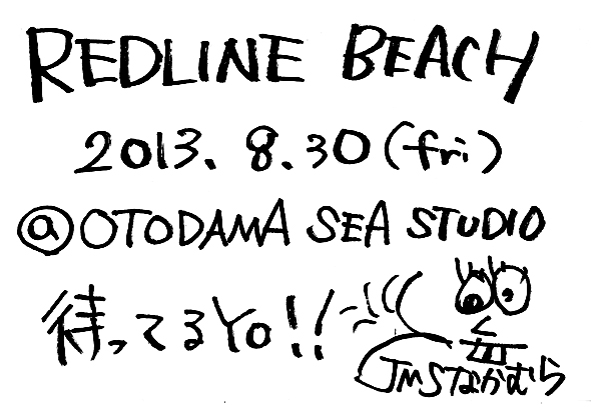 REDLINE BEACH
2013.8.30(fri)
@OTODAMA SEA STUDIO
待ってるYo!!
JMSなかむら